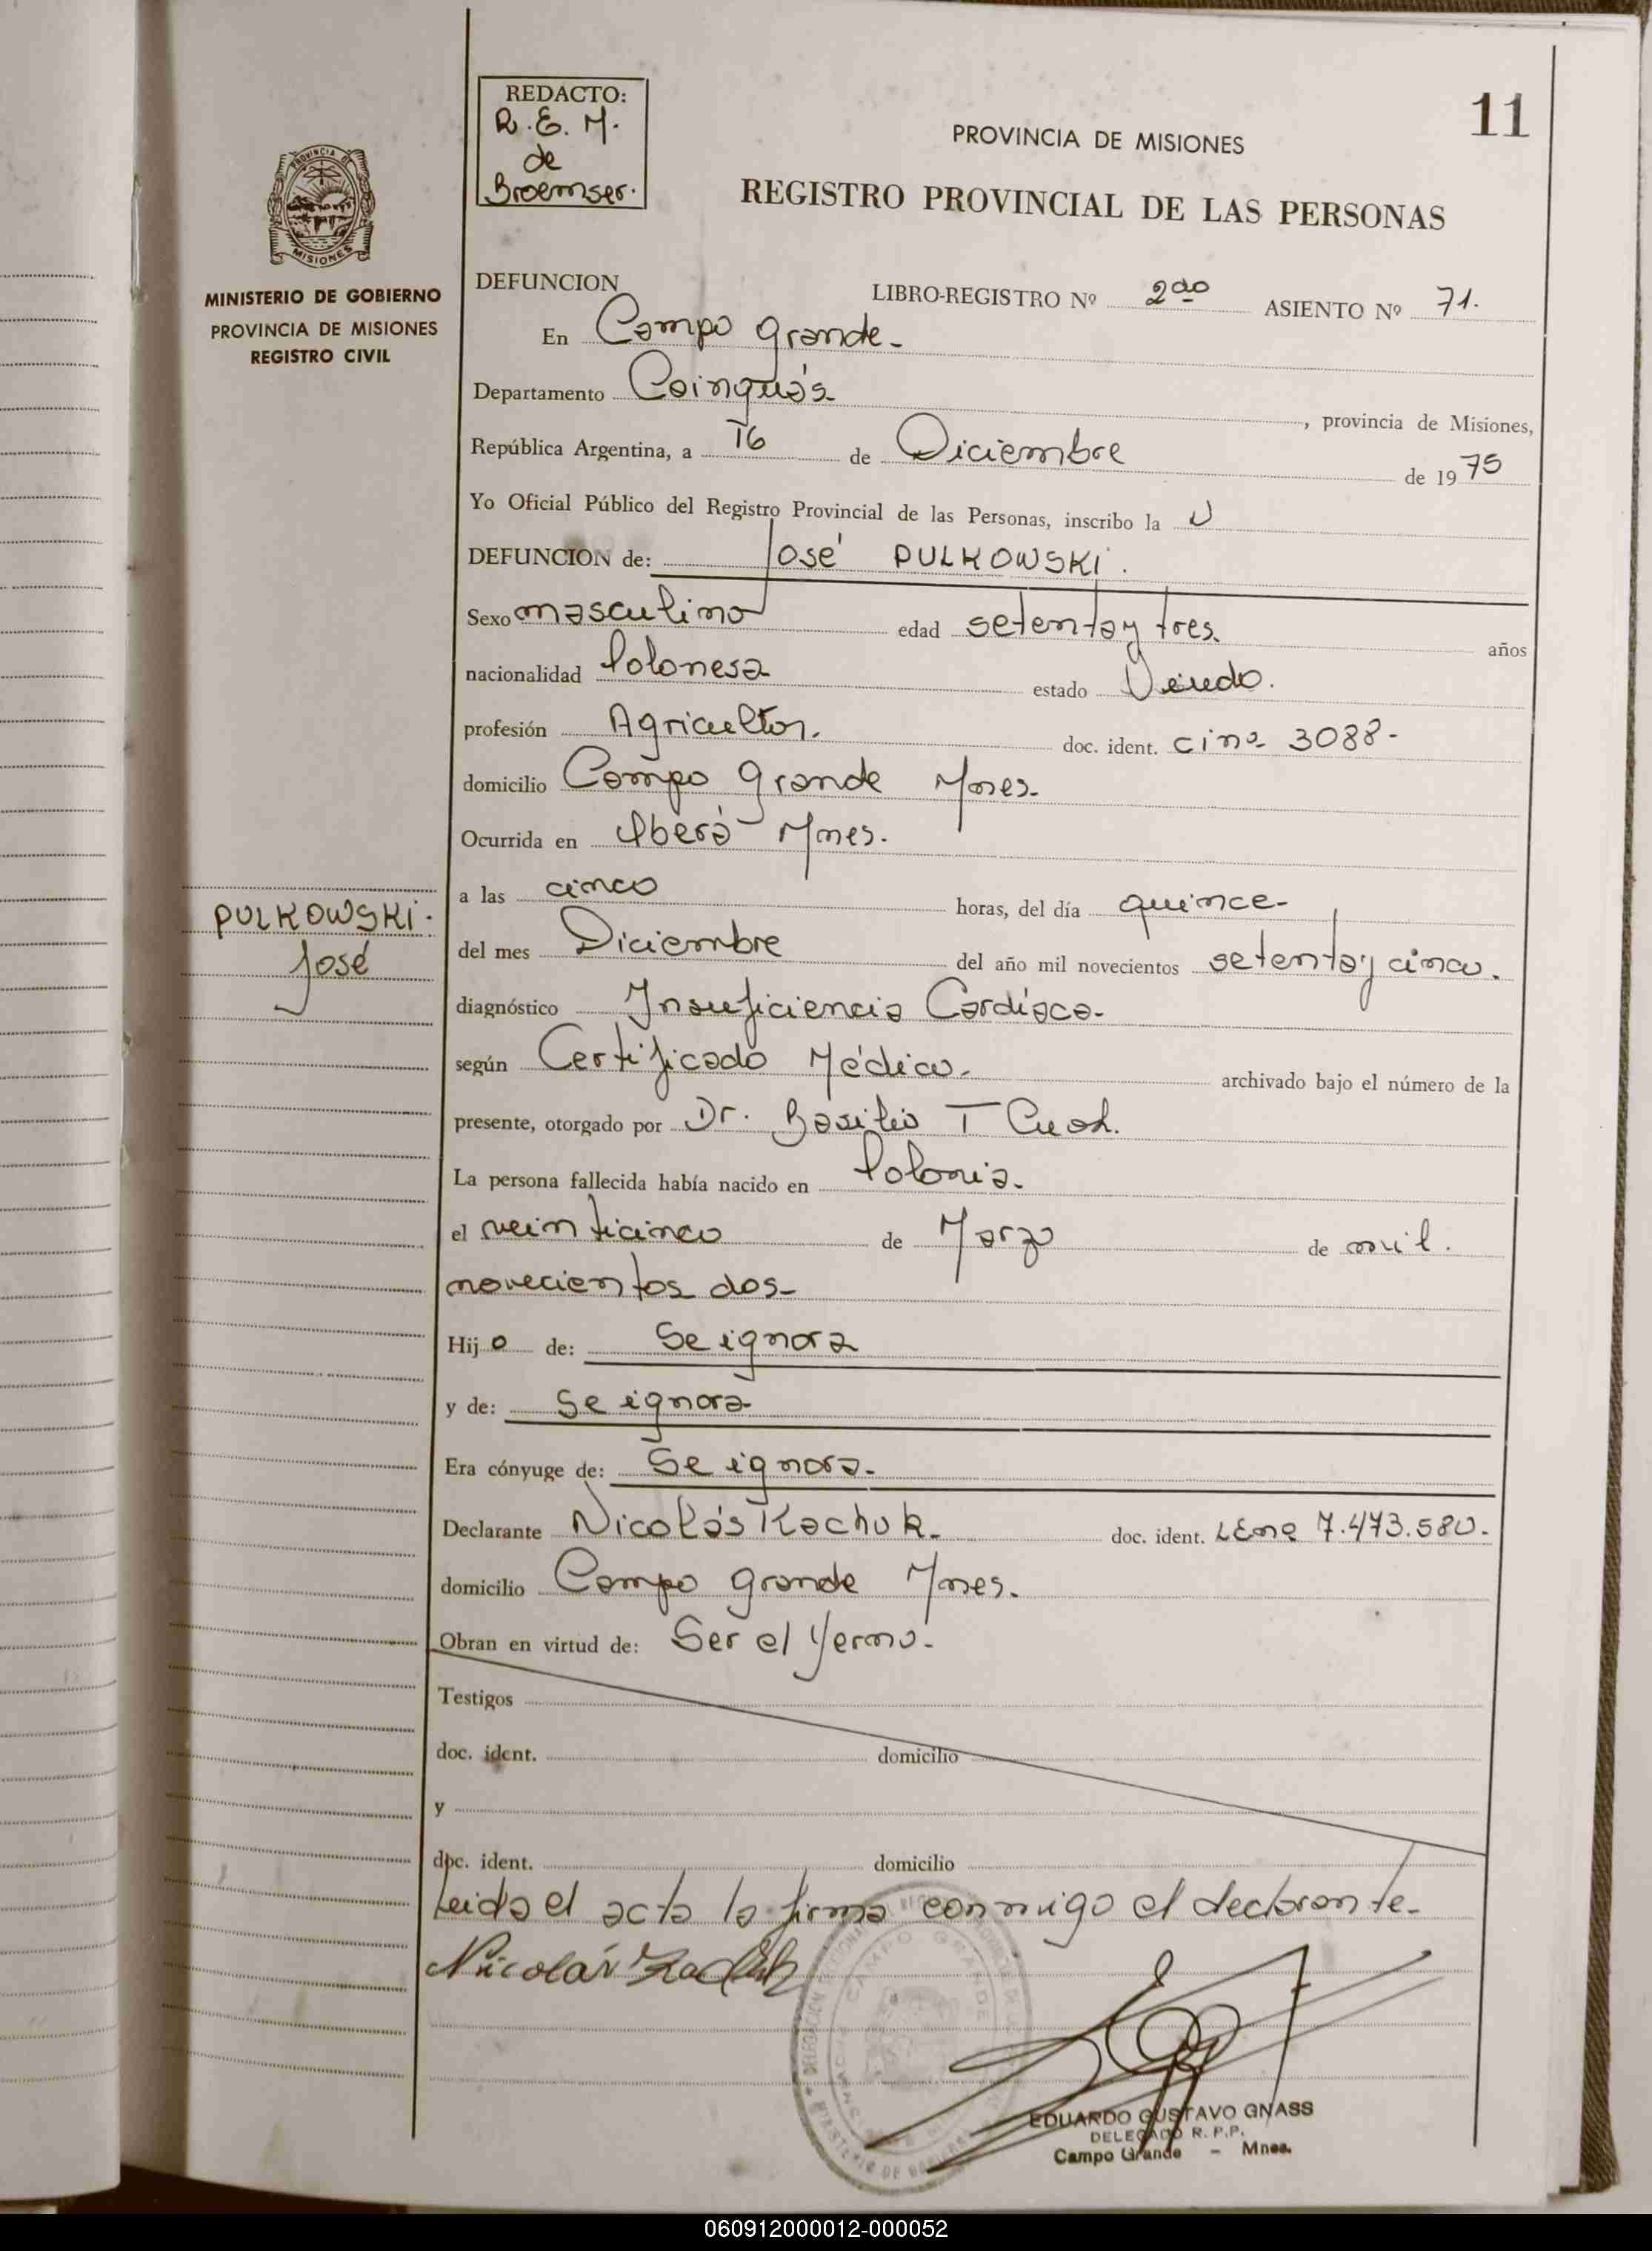 11
REDACTO:
R. E. M.
de
Broemser.
PROVINCIA DE MISIONES
REGISTRO PROVINCIAL DE LAS PERSONAS
PROVINCIA DE
MISIONES
MINISTERIO DE GOBIERNO
PROVINCIA DE MISIONES
REGISTRO CIVIL
DEFUNCION
LIBRO-REGISTRO Nº 2do ASIENTO Nº 71.
En Campo Grande.-
Departamento Cainguás , provincia de Misiones,
República Argentina, a 16 de Diciembre de 1975
Yo Oficial Público del Registro Provincial de las Personas, inscribo la
DEFUNCION de: José PULKOWSKI.
Sexo masculino edad setenta y tres. años
nacionalidad Polonesa estado Viudo.
profesión Agricultor. doc. ident. cina 3088-
domicilio Campo Grande Mnes.
Ocurrida en Oberá Mnes.
a las cinco horas, del día quince-
PULKOWSKI.
José
del mes Diciembre del año mil novecientos setenta y cinco.
diagnóstico Insuficiencia Cardíaca-
según Certificado Médico. archivado bajo el número de la
presente, otorgado por Dr. Basilio T
La persona fallecida había nacido en Polonia.
el veinticinco de Marzo de mil.
novecientos dos-
Hijo de: Se ignora
y de: Se ignora
Era cónyuge de: Se ignora.
Declarante Nicolás Kachuk. doc. ident. LEma 7.473.580.
domicilio Campo Grande Mnes.
Obran en virtud de: Ser el Yerno.
Testigos
doc. ident. domicilio
y
doc. ident. domicilio
Leida el acta la firma conmigo el declarante.
Nicolás
CAMPO GRANDE
EDUARDO GUSTAVO GNASS
DELEGADO R. P. P.
Campo Grande - Mnes.
060912000012-000052